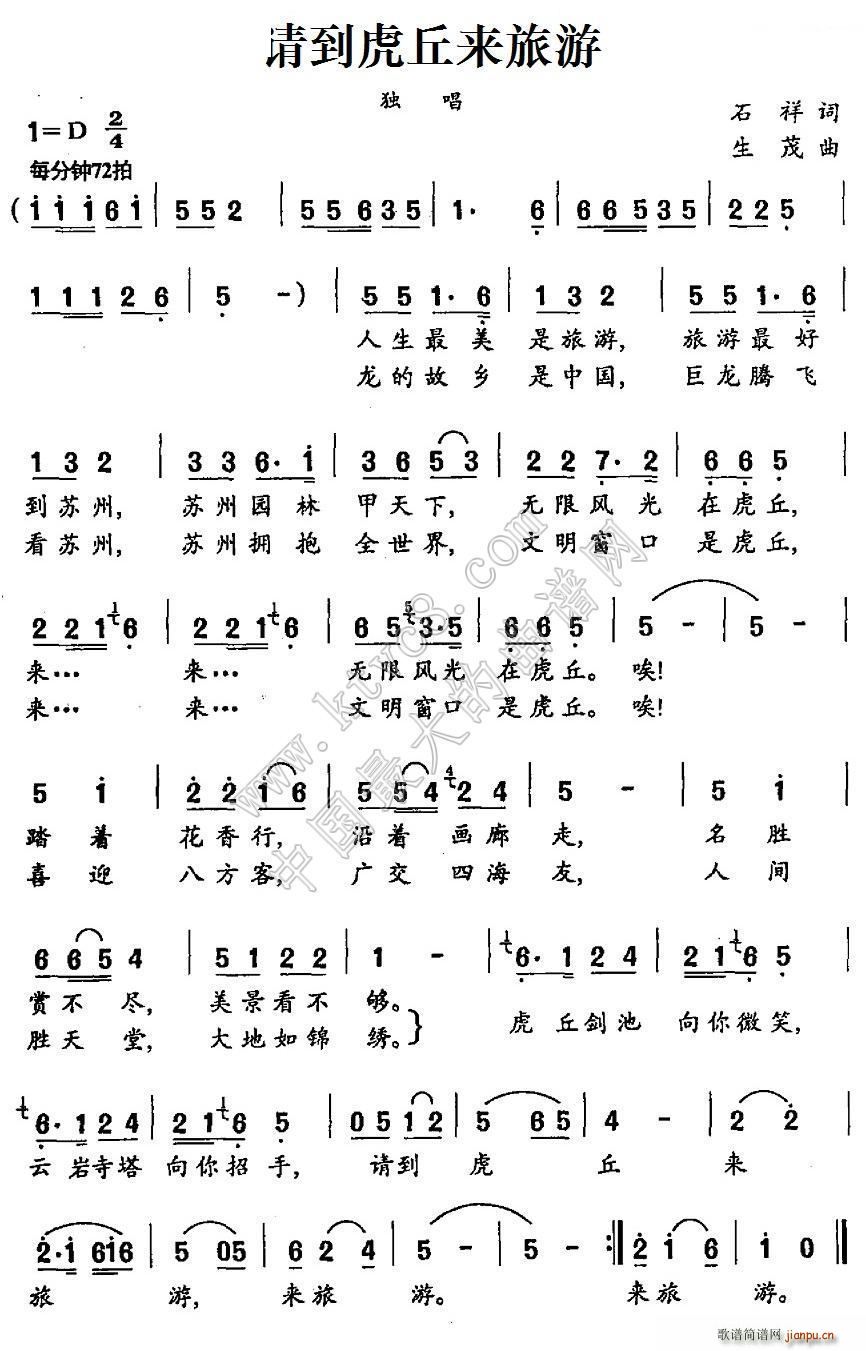 请到虎丘来旅游
独 唱
1=D 2/4
石 祥 词
生 茂 曲
每分钟72拍
( i i i 6 i | 5 5 2 | 5 5 6 3 5 | 1· 6 | 6 6 5 3 5 | 2 2 5 |
1 1 1 2 6 | 5 - ) | 5 5 1· 6 | 1 3 2 | 5 5 1· 6 |
人生最 美 是旅游, 旅游最 好
龙的故 乡 是中国, 巨龙腾 飞
1 3 2 | 3 3 6· i | 3 6 5 3 | 2 2 7· 2 | 6 6 5 |
到苏州, 苏州园 林 甲天下, 无限风 光 在虎丘,
看苏州, 苏州拥 抱 全世界, 文明窗 口 是虎丘,
2 2 1 1 6 | 2 2 1 1 6 | 6 5 5 3·5 | 6 6 5 | 5 - | 5 - |
来… 来… 无限风光 在虎丘。 唉!
来… 来… 文明窗口 是虎丘。 唉!
5 i | 2 2 i 6 | 5 5 4 4 2 4 | 5 - | 5 i |
踏 着 花香行, 沿着 画廊 走, 名 胜
喜 迎 八方客, 广交 四海 友, 人 间
6 6 5 4 | 5 1 2 2 | 1 - | 1 6· 1 2 4 | 2 1 1 6 5 |
赏不 尽, 美景看不 够。
胜天 堂, 大地如锦 绣。} 虎 丘剑池 向你微笑,
1 6· 1 2 4 | 2 1 1 6 5 | 0 5 1 2 | 5 6 5 | 4 - | 2 2· |
云 岩寺塔 向你招 手, 请到 虎 丘 来
2·i 6i6 | 5 05 | 6 2 4 | 5 - | 5 - :| 2 i 6 | i 0 ‖
旅 游, 来旅 游。 来旅 游。
www.ktvc8.com
中国最大的曲谱网
歌谱简谱网 jianpu.cn